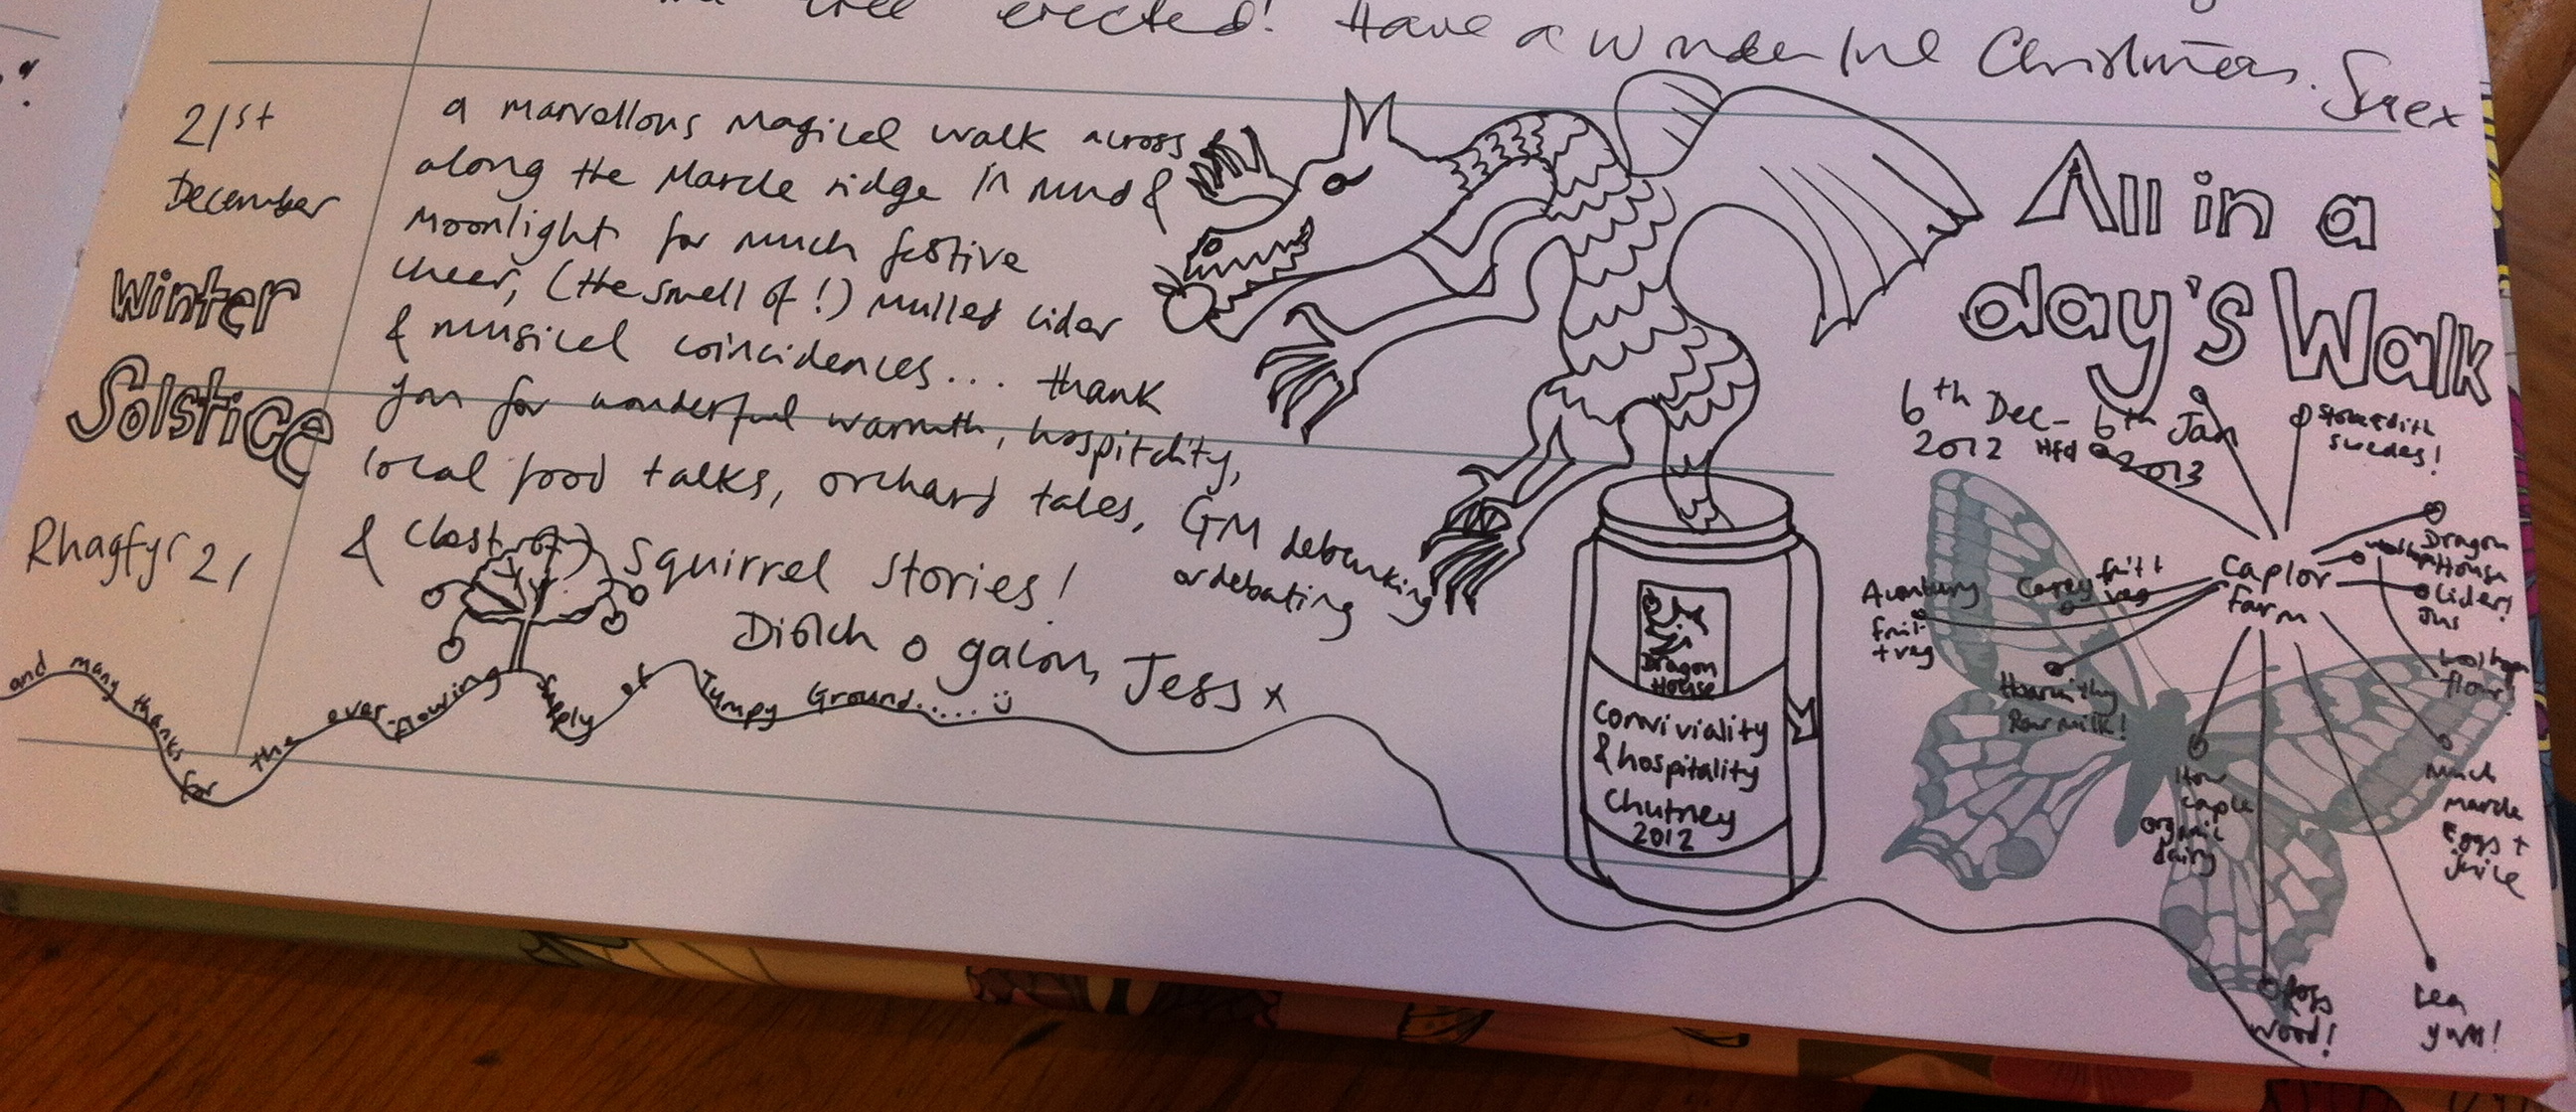 tree erected! Have a wonderful Christmas. Sue x
21st
December
Winter
Solstice
Rhagfyr 21
a marvellous magical walk across
along the Marcle ridge in mud &
moonlight for much festive
cheer, (the smell of!) mulled cider
& musical coincidences... thank
you for wonderful warmth, hospitality,
local food talks, orchard tales, GM debunking
or debating
& (best of) squirrel stories!
Diolch o galon, Jess x
and many thanks for the ever-flowing supply of Tumpy Ground.....
Dragon
House
Conviviality
& hospitality
Chutney
2012
All in a
day's Walk
6th Dec - 6th Jan
2012 Hfd 2013
swedes!
Caplor
farm
Dragon
House
Cider!
Jus
flour!
Much
Marcle
Eggs +
juice
Lea
yums!
Ross
wood!
How
Caple
organic
dairy
Hoarwithy
Raw milk!
Carey fruit
veg
fruit
+ veg